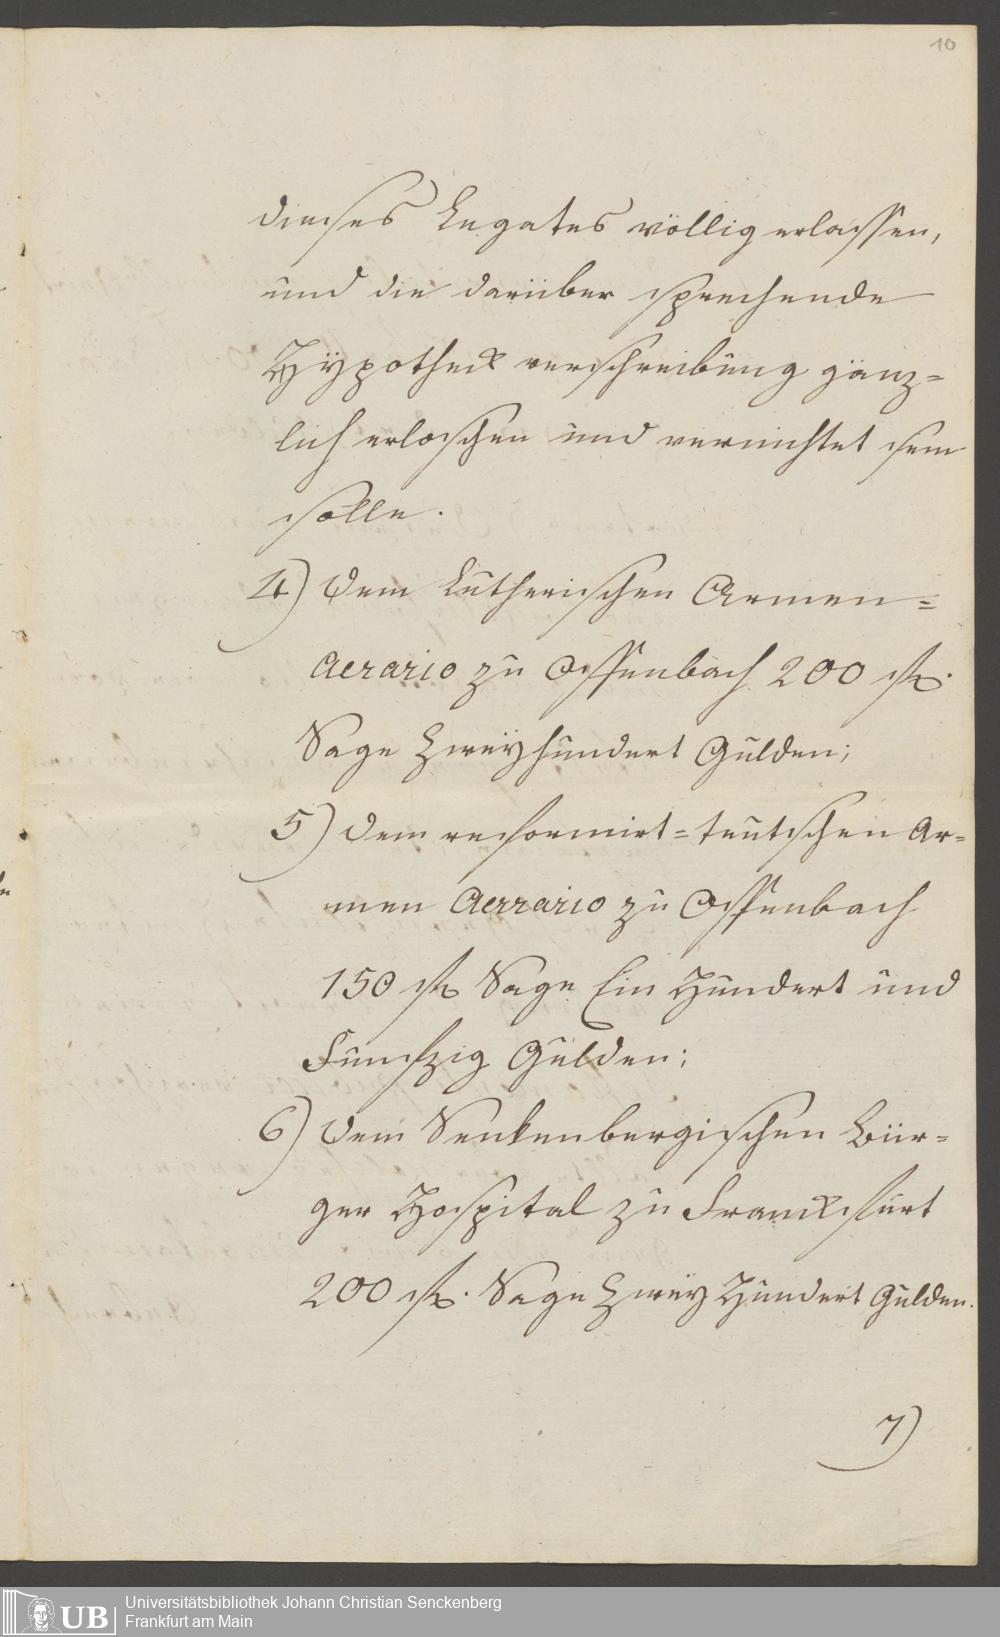 10
dieses Legates völlig erlassen,
und die darüber sprechende
Hÿpotheck verschreibung gänz=
lich erloschen und vernichtet seyn
solle.
4) Dem Lutherischen Armen=
Aerario zu Offenbach 200 fl.
Sage Zweÿhundert Gulden;
5) dem reformirt=teutschen Ar=
men Aerrario zu Offenbach
150 fl Sage Ein Hundert und
Funfzig Gulden;
6) Dem Senkenbergischen Bür=
ger Hospital zu Franckfurt
200 fl. Sage Zweÿ Hundert Gulden.
7)
UB Universitätsbibliothek Johann Christian Senckenberg
Frankfurt am Main